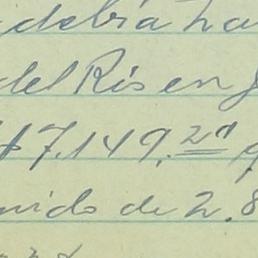 debía ha
del Ris en g
$7.149.29 q
nido de 2.8